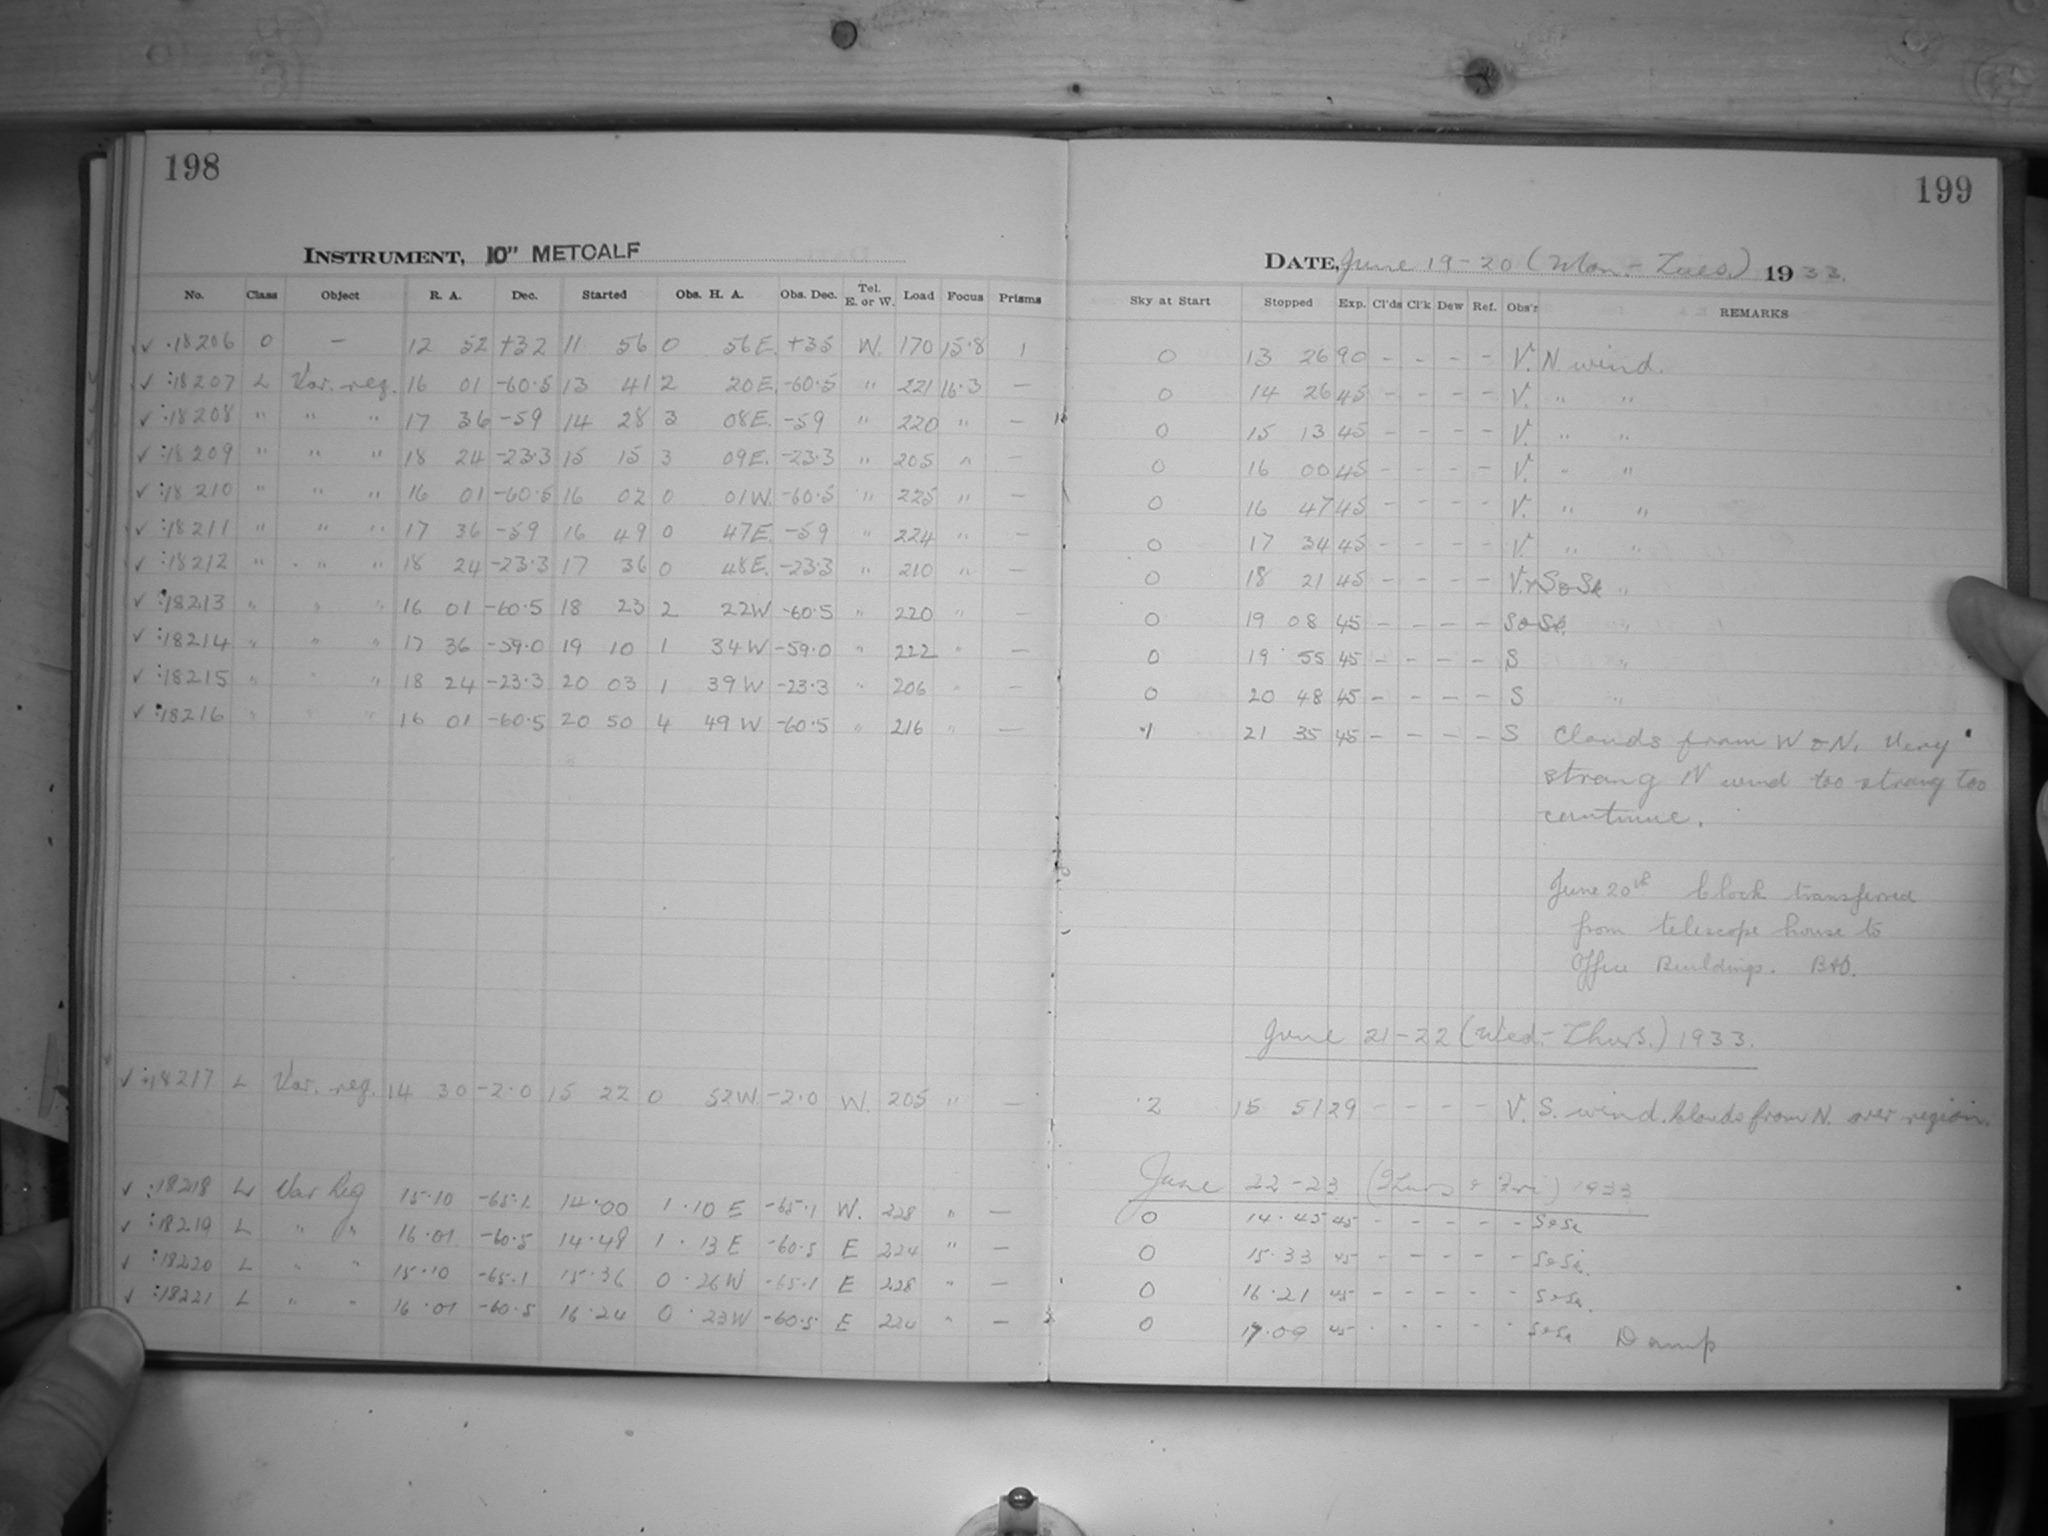 198
INSTRUMENT, 10" METCALF
No. Class Object R. A. Dec. Started Obs. H. A. Obs. Dec. Tel. E. or W. Load Focus Prisms
✓ 18206 O — 12 52 +32 11 56 0 56E. +35 W. 170 15.8 1
✓ :18207 L Var. reg. 16 01 -60.5 13 41 2 20E. -60.5 " 221 16.3 —
✓ :18208 " " " 17 36 -59 14 28 3 08E. -59 " 220 " —
✓ :18209 " " " 18 24 -23.3 15 15 3 09E. -23.3 " 205 " —
✓ :18210 " " " 16 01 -60.5 16 02 0 01W. -60.5 " 225 " —
✓ :18211 " " " 17 36 -59 16 49 0 47E. -59 " 224 " —
✓ :18212 " " " 18 24 -23.3 17 36 0 48E. -23.3 " 210 " —
✓ :18213 " " " 16 01 -60.5 18 23 2 22W -60.5 " 220 " —
✓ :18214 " " " 17 36 -59.0 19 10 1 34W -59.0 " 222 " —
✓ :18215 " " " 18 24 -23.3 20 03 1 39W -23.3 " 206 " —
✓ :18216 " " " 16 01 -60.5 20 50 4 49W -60.5 " 216 " —
✓ :18217 L Var. reg. 14 30 -2.0 15 22 0 52W. -2.0 W. 205 " —
✓ :18218 L Var Reg 15.10 -65.1 14.00 1.10 E -65.1 W. 228 " —
✓ :18219 L " " 16.01 -60.5 14.48 1.13 E -60.5 E 224 " —
✓ :18220 L " " 15.10 -65.1 15.36 0.26W -65.1 E 228 " —
✓ :18221 L " " 16.01 -60.5 16.24 0.23W -60.5 E 224 " —
199
DATE, June 19-20 (Mon-Tues.) 1933.
Sky at Start Stopped Exp. Cl'ds Cl'k Dew Ref. Obs'r REMARKS
0 13 26 90 - - - - V. N wind.
0 14 26 45 - - - - V. " "
0 15 13 45 - - - - V. " "
0 16 00 45 - - - - V. " "
0 16 47 45 - - - - V. " "
0 17 34 45 - - - - V. " "
0 18 21 45 - - - - "
0 19 08 45 - - - - "
0 19 55 45 - - - - S "
0 20 48 45 - - - - S "
.1 21 35 45 - - - - S Clouds from W & N. Very
strong N wind too strong too
continue.
June 20th Clock transferred
from telescope house to
Office Buildings.
June 21-22 (Wed.-Thurs.) 1933.
.2 15 51 29 - - - - V. S. wind. Clouds from N. over region.
June 22-23 (Thurs & Fri) 1933
0 14.45 45 - - - - - S&Se
0 15.33 45 - - - - - S&Se.
0 16.21 45 - - - - - S&Se.
0 17.09 45 - - - - - S&Se Damp